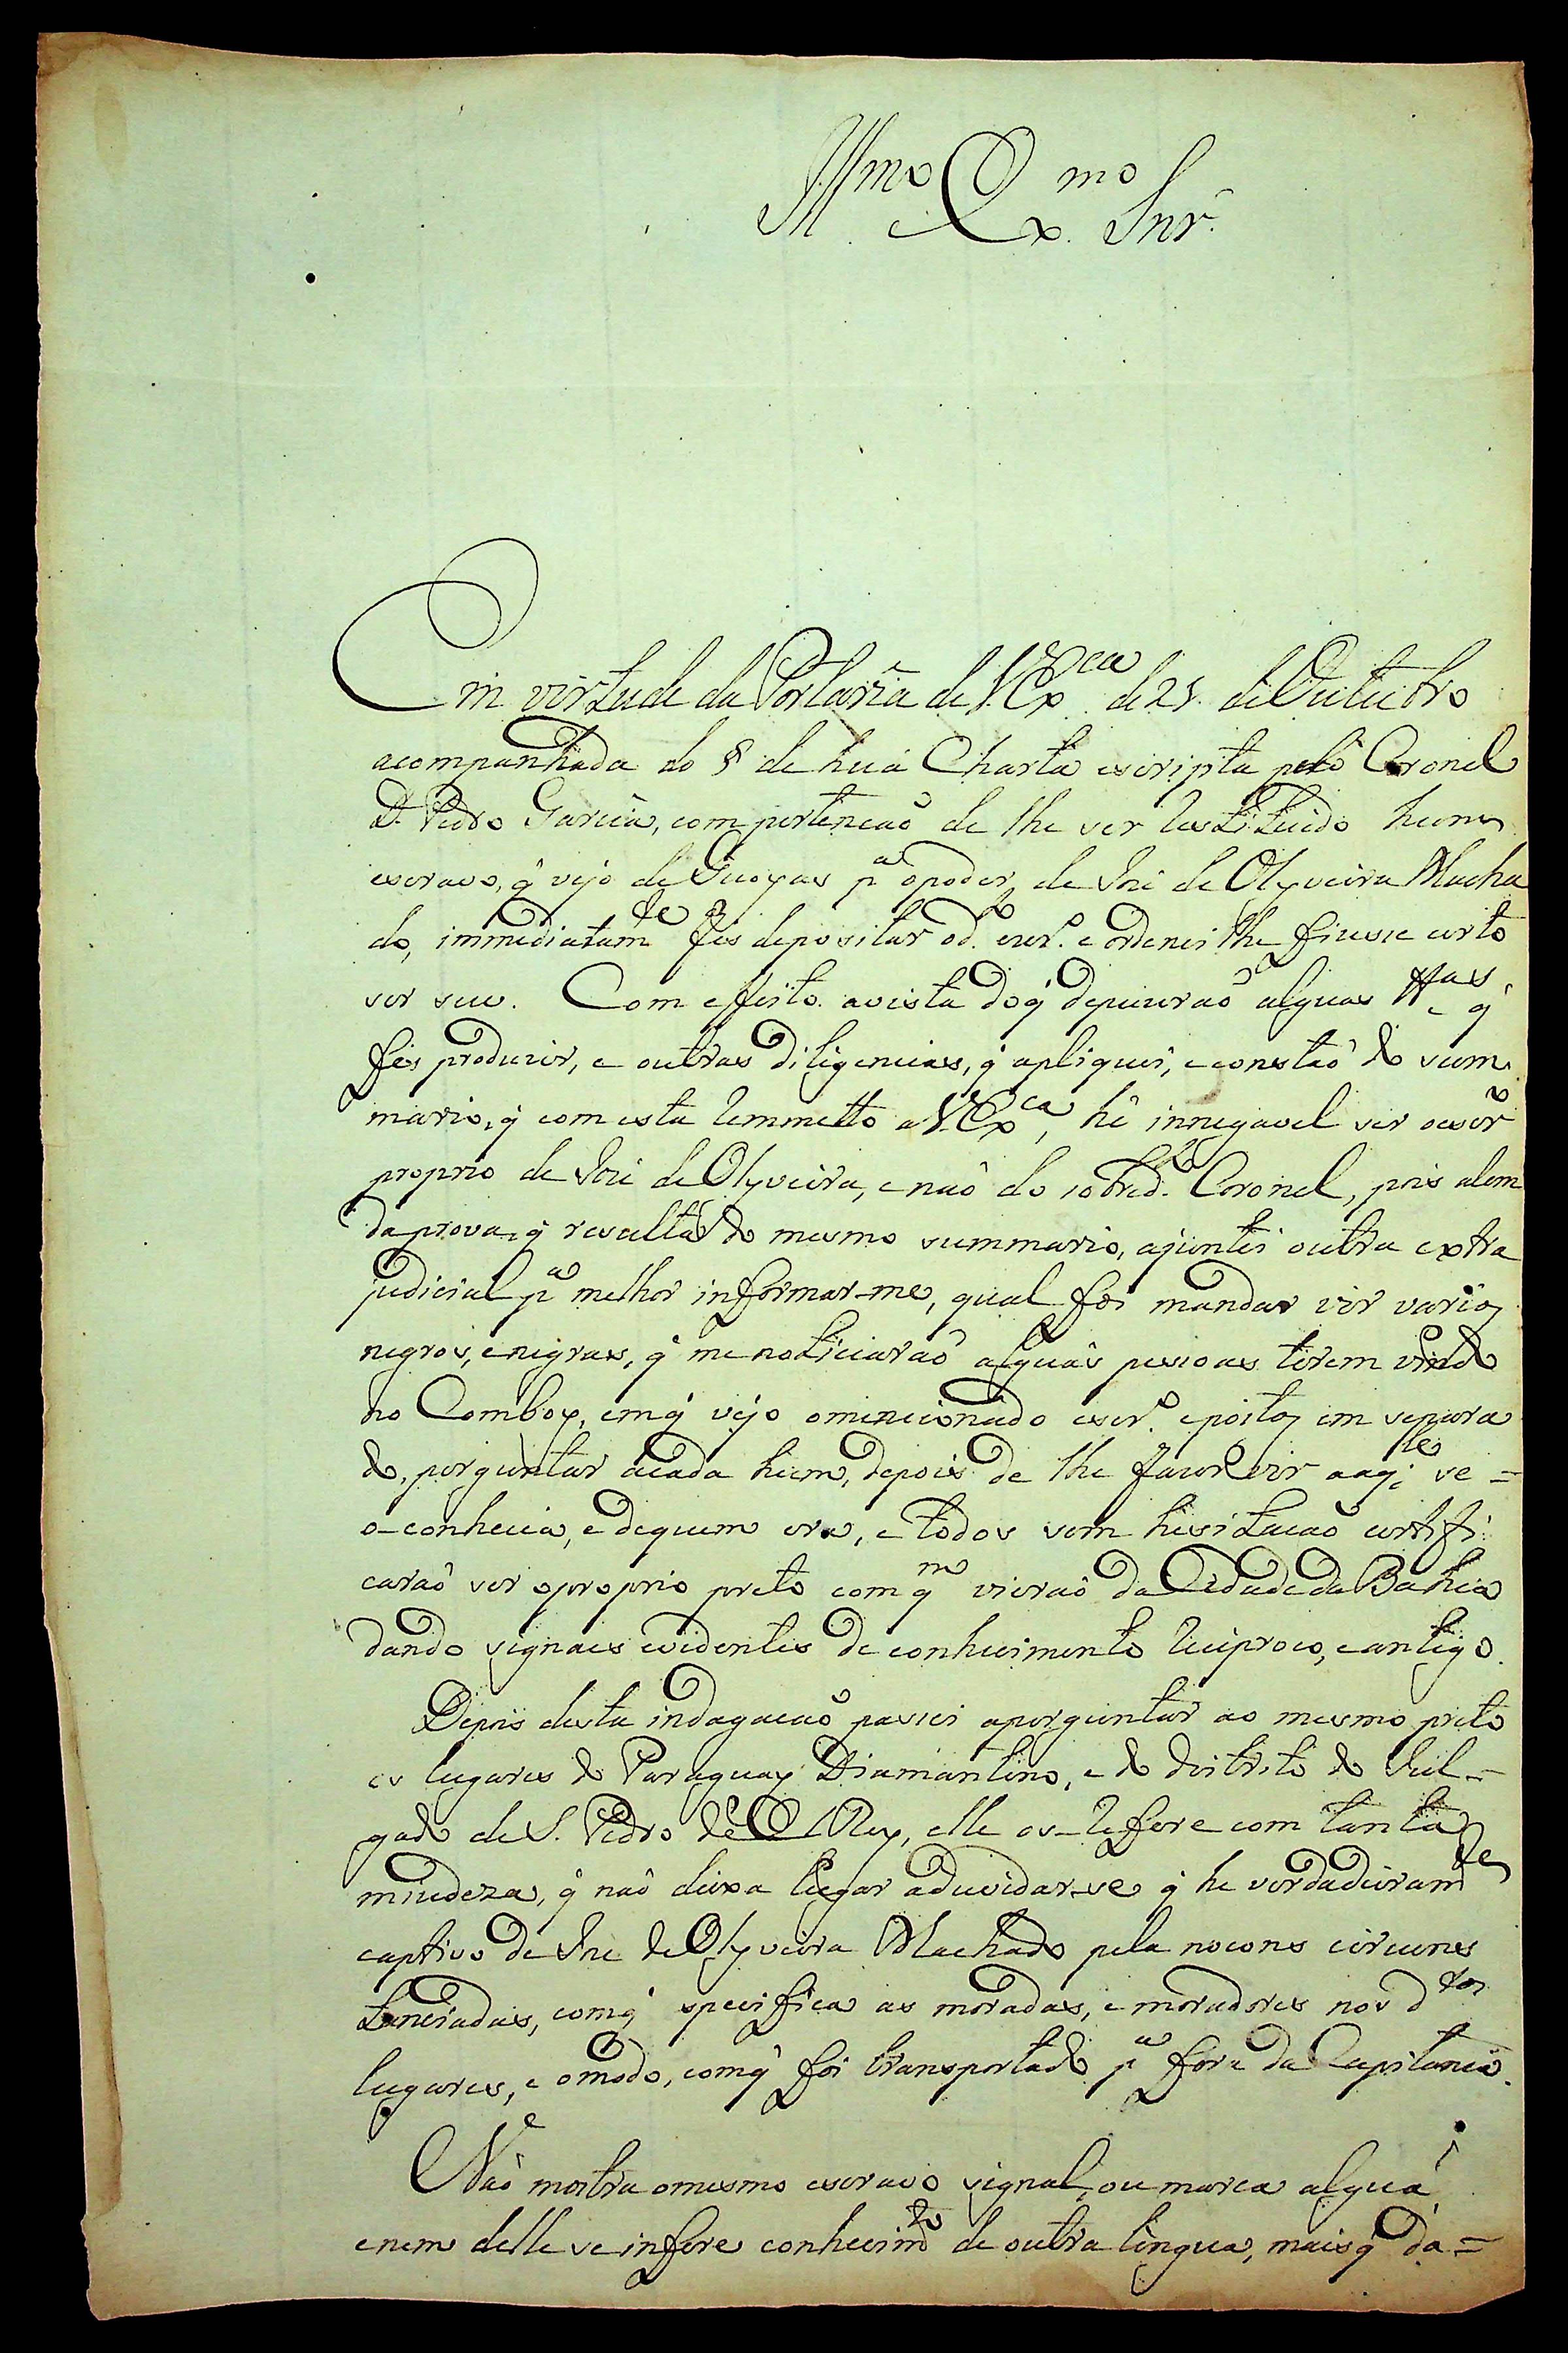 Ill.mo Ex.mo Snr.
Em virtude da Portaria de V. Ex.ca de 25. de Outubro
acompanhada do § de huã Charta escripta pelo Coronel
D. Pedro Garcia, com pertencaõ de lhe ser restituido hum
escravo, q̃ vejo de Guoyas p.a o poder de Joze de Olyveira Macha
do, immediatam.te fés depositar o d.o escr.o e ordenei lhe fizesse certo
ser seu. Com effeito avista do q̃ depuzeraõ alguas tt.as q̃
fés produzir, e outras diligencias, q̃ apliquei, e constaõ do sum
mario, q̃ com esta remmetto a V. Ex.ca, hé innegavel ser o escr.o
proprio de Joze de Olyveira, e naõ do sobred.o Coronel, pois alem
da prova, q̃ resulta do mesmo summario, ajuntei outra extra
judicial p.a melhor informar-me, qual foi mandar vir varios
negros, e negras, q̃ me noticiaraõ alguãs pessoas terem vindo
no Comboy, em q̃ vejo o mencionado escr.o e postos em separa
do, perguntar a cada hum, depois de lhe fazer vir aq.le se=
o-conhecia, e de quem era, e todos sem hesitacaõ certifi
caraõ ser o proprio preto com q.m vieraõ da Cidade da Bahia
dando signaes evidentes de conhecimento reciproco, e antigo.
Depois desta indagacaõ passei a perguntar ao mesmo preto
os lugares do Paraguay Diamantino, e do distrito do Jul=
gado de S. Pedro de El Rey, elle os-refere com tanta
miudeza, q̃ naõ deixa lugar a duvidar-se q̃ he verdadeiram.te
captivo de Joze de Olyveira Machado pela nocons circuns
tanciadas, com q̃ specifica as moradas, e moradores nos d.tos
lugares, e o modo, com q̃ foi transportado p.a fora da Capitania.
Naõ mostra o mesmo escravo signal, ou marca alguã
e nem delle se infere conhecim.to de outra lingua, mais q̃ da=